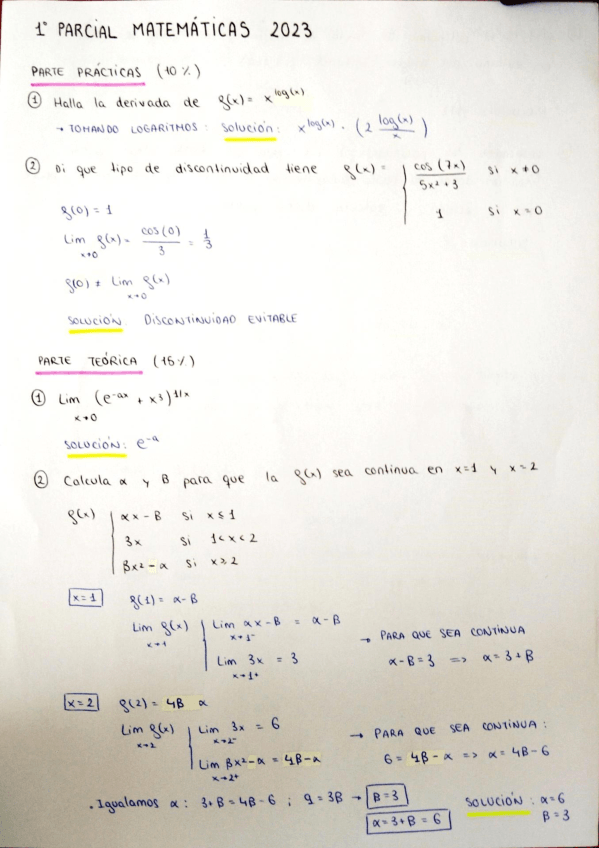 1º PARCIAL MATEMÁTICAS 2023
PARTE PRÁCTICAS (10%)
① Halla la derivada de f(x) = x^log(x)
→ TOMANDO LOGARITMOS: Solución: x^log(x) · (2 log(x)/x)
② Di que tipo de discontinuidad tiene f(x) = { cos(7x)/(5x²+3) si x≠0
1 si x=0
f(0) = 1
Lim x→0 f(x) = cos(0)/3 = 1/3
f(0) ≠ Lim x→0 f(x)
SOLUCIÓN DISCONTINUIDAD EVITABLE
PARTE TEÓRICA (15%)
① Lim x→0 (e^-ax + x³)^1/x
SOLUCIÓN: e^-a
② Calcula α y B para que la f(x) sea continua en x=1 y x=2
f(x) { αx - B si x≤1
3x si 1<x<2
Bx² - α si x≥2
x=1 f(1) = α-B
Lim x→1 f(x) { Lim x→1⁻ αx-B = α-B
Lim x→1⁺ 3x = 3
→ PARA QUE SEA CONTINUA
α-B=3 => α=3+B
x=2 f(2) = 4B α
Lim x→2 f(x) { Lim x→2⁻ 3x = 6
Lim x→2⁺ Bx²-α = 4B-α
→ PARA QUE SEA CONTINUA:
6 = 4B-α => α = 4B-6
. Igualamos α: 3+B = 4B-6 ; 9=3B → B=3
α=3+B=6
SOLUCIÓN: α=6
B=3